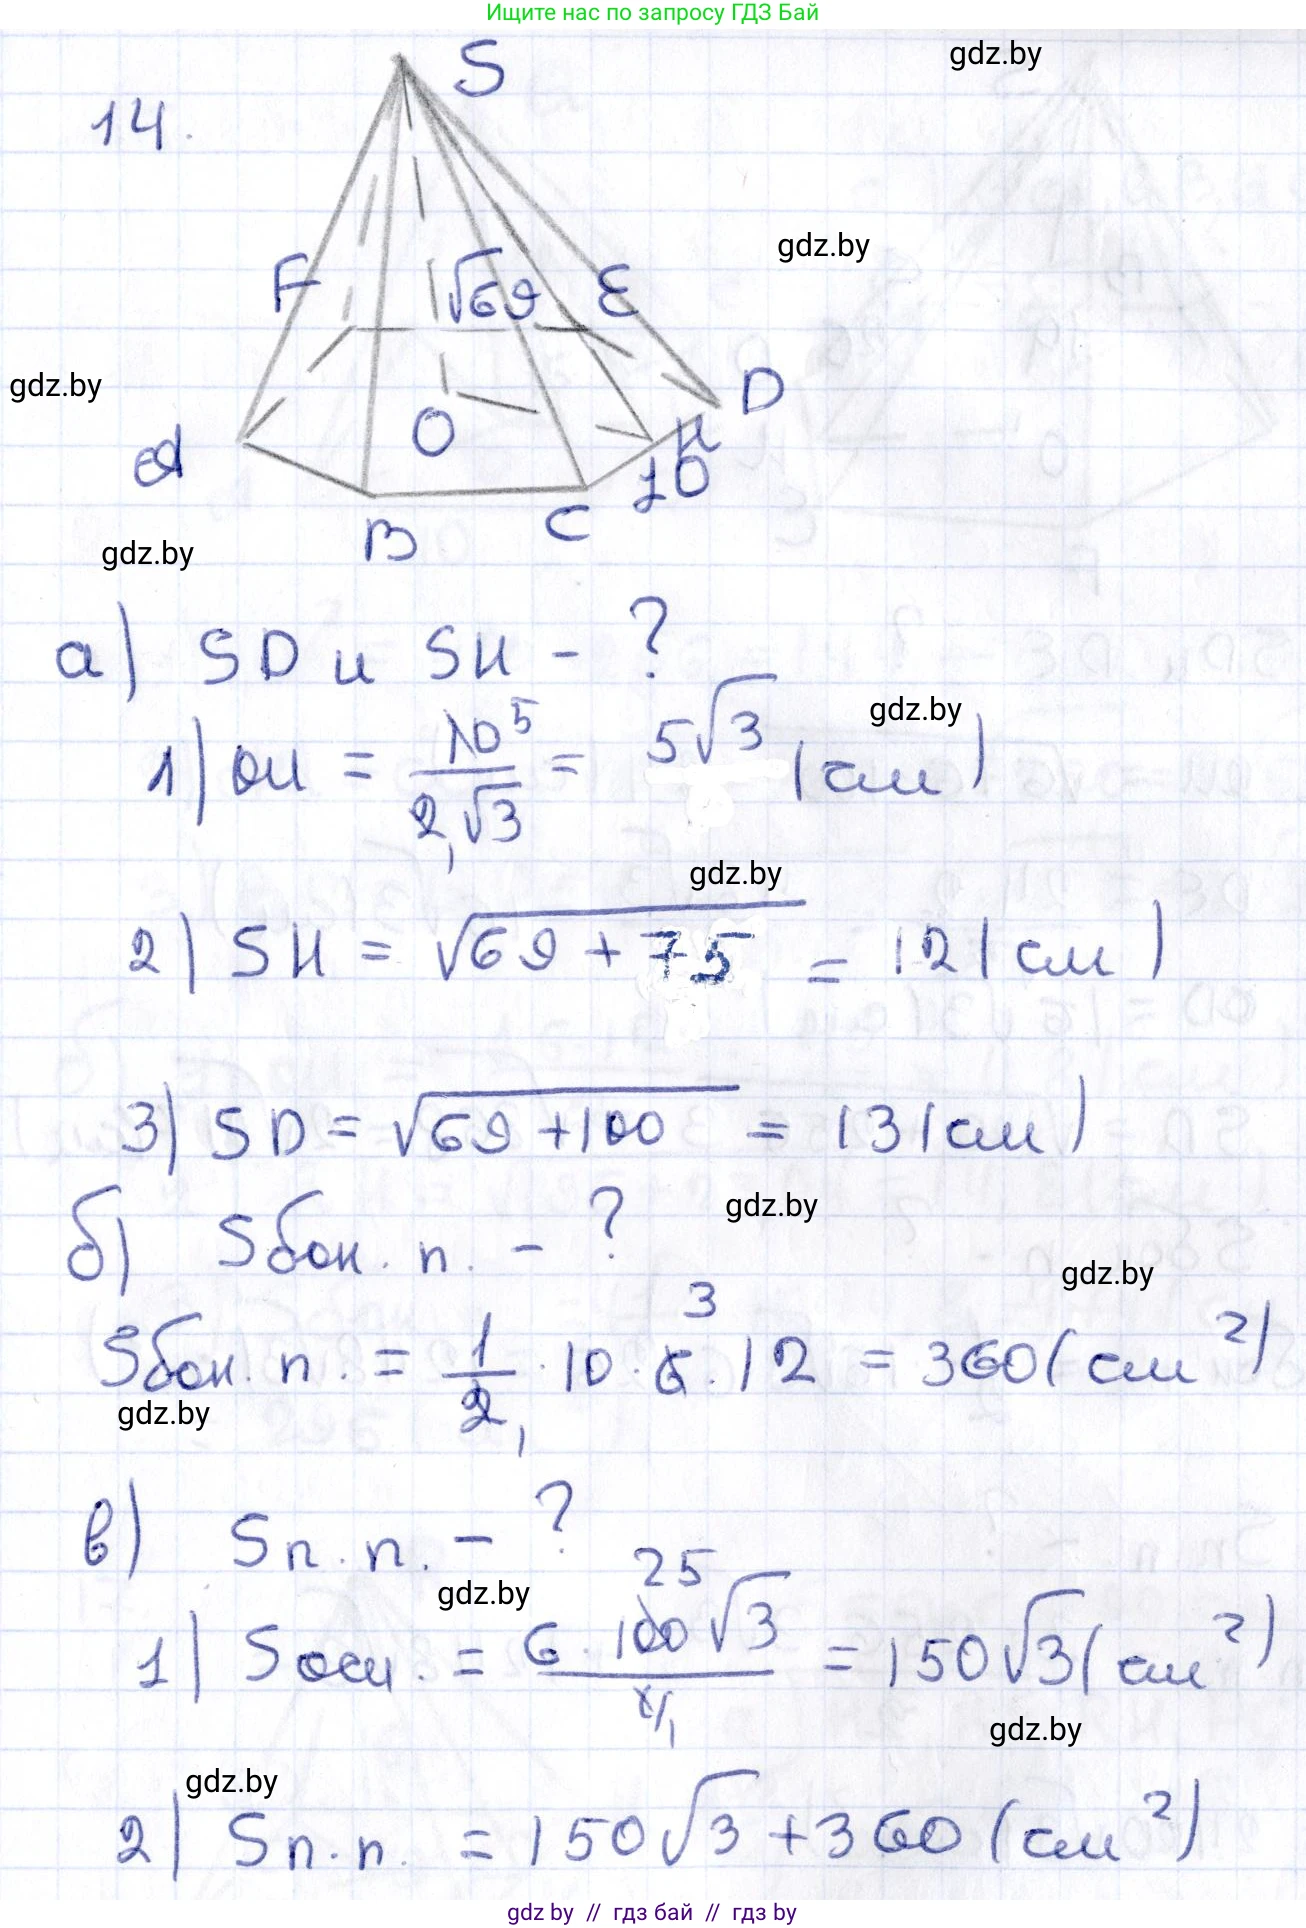 Ищите нас по запросу ГДЗ Бай
gdz.by
14.
S
gdz.by
F
√69
E
gdz.by
D
O
H
A
10
B
C
gdz.by
а) SD и SH - ?
gdz.by
1) OH = 10⁵ / 2√3 = 5√3 (см)
gdz.by
2) SH = √69 + 75 = 12 (см)
3) SD = √69 + 100 = 13 (см)
gdz.by
б) Sбок. п. - ?
gdz.by
Sбок. п. = 1/2 · 10 · 6³ · 12 = 360 (см²)
gdz.by
в) Sп. п. - ?
gdz.by
1) Sосн. = 6 · 100²⁵ √3 / 4₁ = 150√3 (см²)
gdz.by
gdz.by
2) Sп. п. = 150√3 + 360 (см²)
gdz by // гдз бай // гдз by